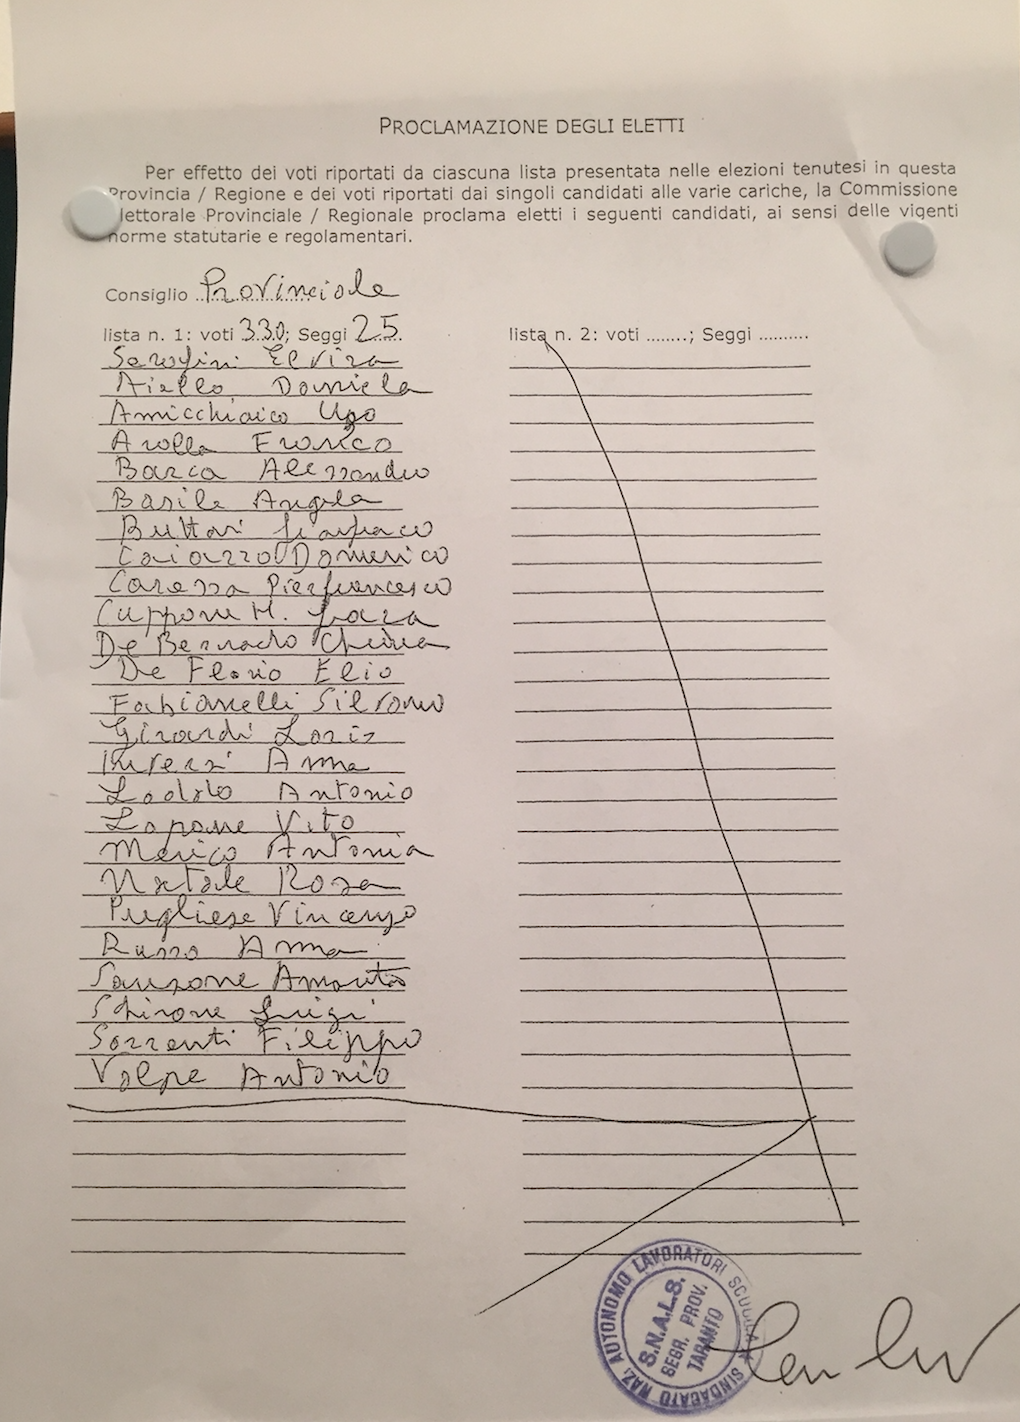 PROCLAMAZIONE DEGLI ELETTI
Per effetto dei voti riportati da ciascuna lista presentata nelle elezioni tenutesi in questa
Provincia / Regione e dei voti riportati dai singoli candidati alle varie cariche, la Commissione
lettorale Provinciale / Regionale proclama eletti i seguenti candidati, ai sensi delle vigenti
norme statutarie e regolamentari.
Consiglio Provinciale
lista n. 1: voti 330; Seggi 25
lista n. 2: voti ........; Seggi ..........
Serafini Elvira
Aiello Daniela
Amicchiaico Ugo
Arolla Franco
Barca Alessandro
Basile Angela
Buttari Gianfranco
Caiazzo Domenico
Carezza Pierfrancesco
Cuppone M. Grazia
De Bernardo Chiara
De Florio Elio
Fabianelli Silvano
Girardi Loris
Anna
Loddo Antonio
Lopane Vito
Merico Antonia
Natale Rosa
Pugliese Vincenzo
Russo Anna
Sansone Amanta
Schirone Luigi
Sorrenti Filippo
Volpe Antonio
SINDACATO NAZ. AUTONOMO LAVORATORI SCUOLA
S.N.A.L.S.
SEGR. PROV.
TARANTO